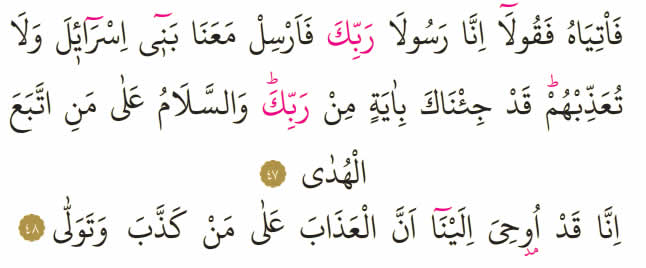 فَاْتِيَاهُ فَقُولَٓا اِنَّا رَسُولَا رَبِّكَ فَاَرْسِلْ مَعَنَا بَنٖٓى اِسْرَٓائٖلَ وَلَا
تُعَذِّبْهُمْؕ قَدْ جِئْنَاكَ بِاٰيَةٍ مِنْ رَبِّكَؕ وَالسَّلَامُ عَلٰى مَنِ اتَّبَعَ
الْهُدٰى ٤٧
اِنَّا قَدْ اُو۫حِىَ اِلَيْنَٓا اَنَّ الْعَذَابَ عَلٰى مَنْ كَذَّبَ وَتَوَلّٰى ٤٨